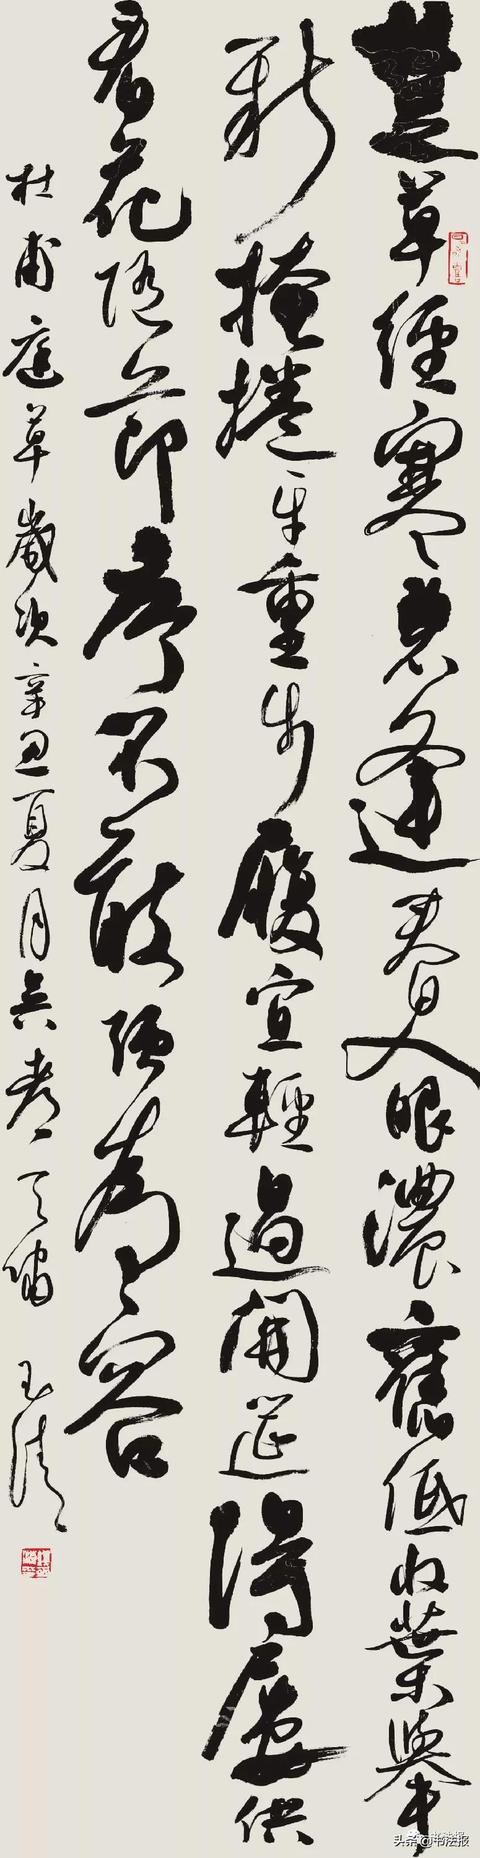 楚草經寒碧逢春入眼濃舊低收葉舉
新掩捲牙重步履宜輕過開筵得屢供
看花隨節序不敢強為容
杜甫庭草歲次辛丑夏月
头条@书法报